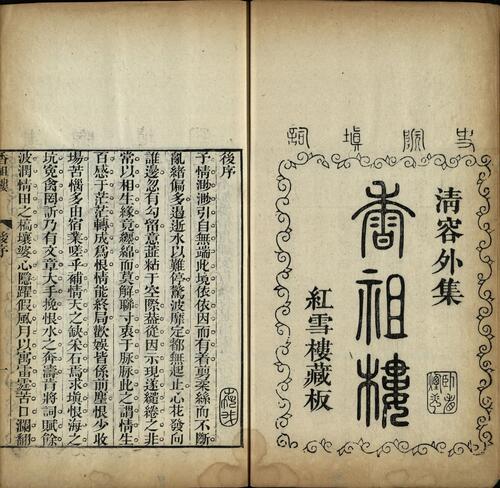 史院填詞
清容外集
香祖樓
紅雪樓藏板
後序
予情渺渺引自無端此境依依因而有着剪柔絲而不斷
亂緒偏多遏逝水以難停驚波靡定都無起止心花發向
誰邊忽有勾留意蕋粘于空際益從因示現遂繾綣之非
常以相生緣竟纏綿而莫解聯寸衷于脈脈此之謂情生
百感于茫茫轉成爲恨情能終局歡娛皆係前塵恨少收
場苦惱多由宿業嗟乎補情天之缺朱石焉求塡恨海之
坑寃禽罔訴乃有文章大手挽恨水之奔濤音將詞賦餘
波潤情田之槁壤婆心隱躍假風月以寓雷霆苦口瀾翻
香祖樓 後序 一